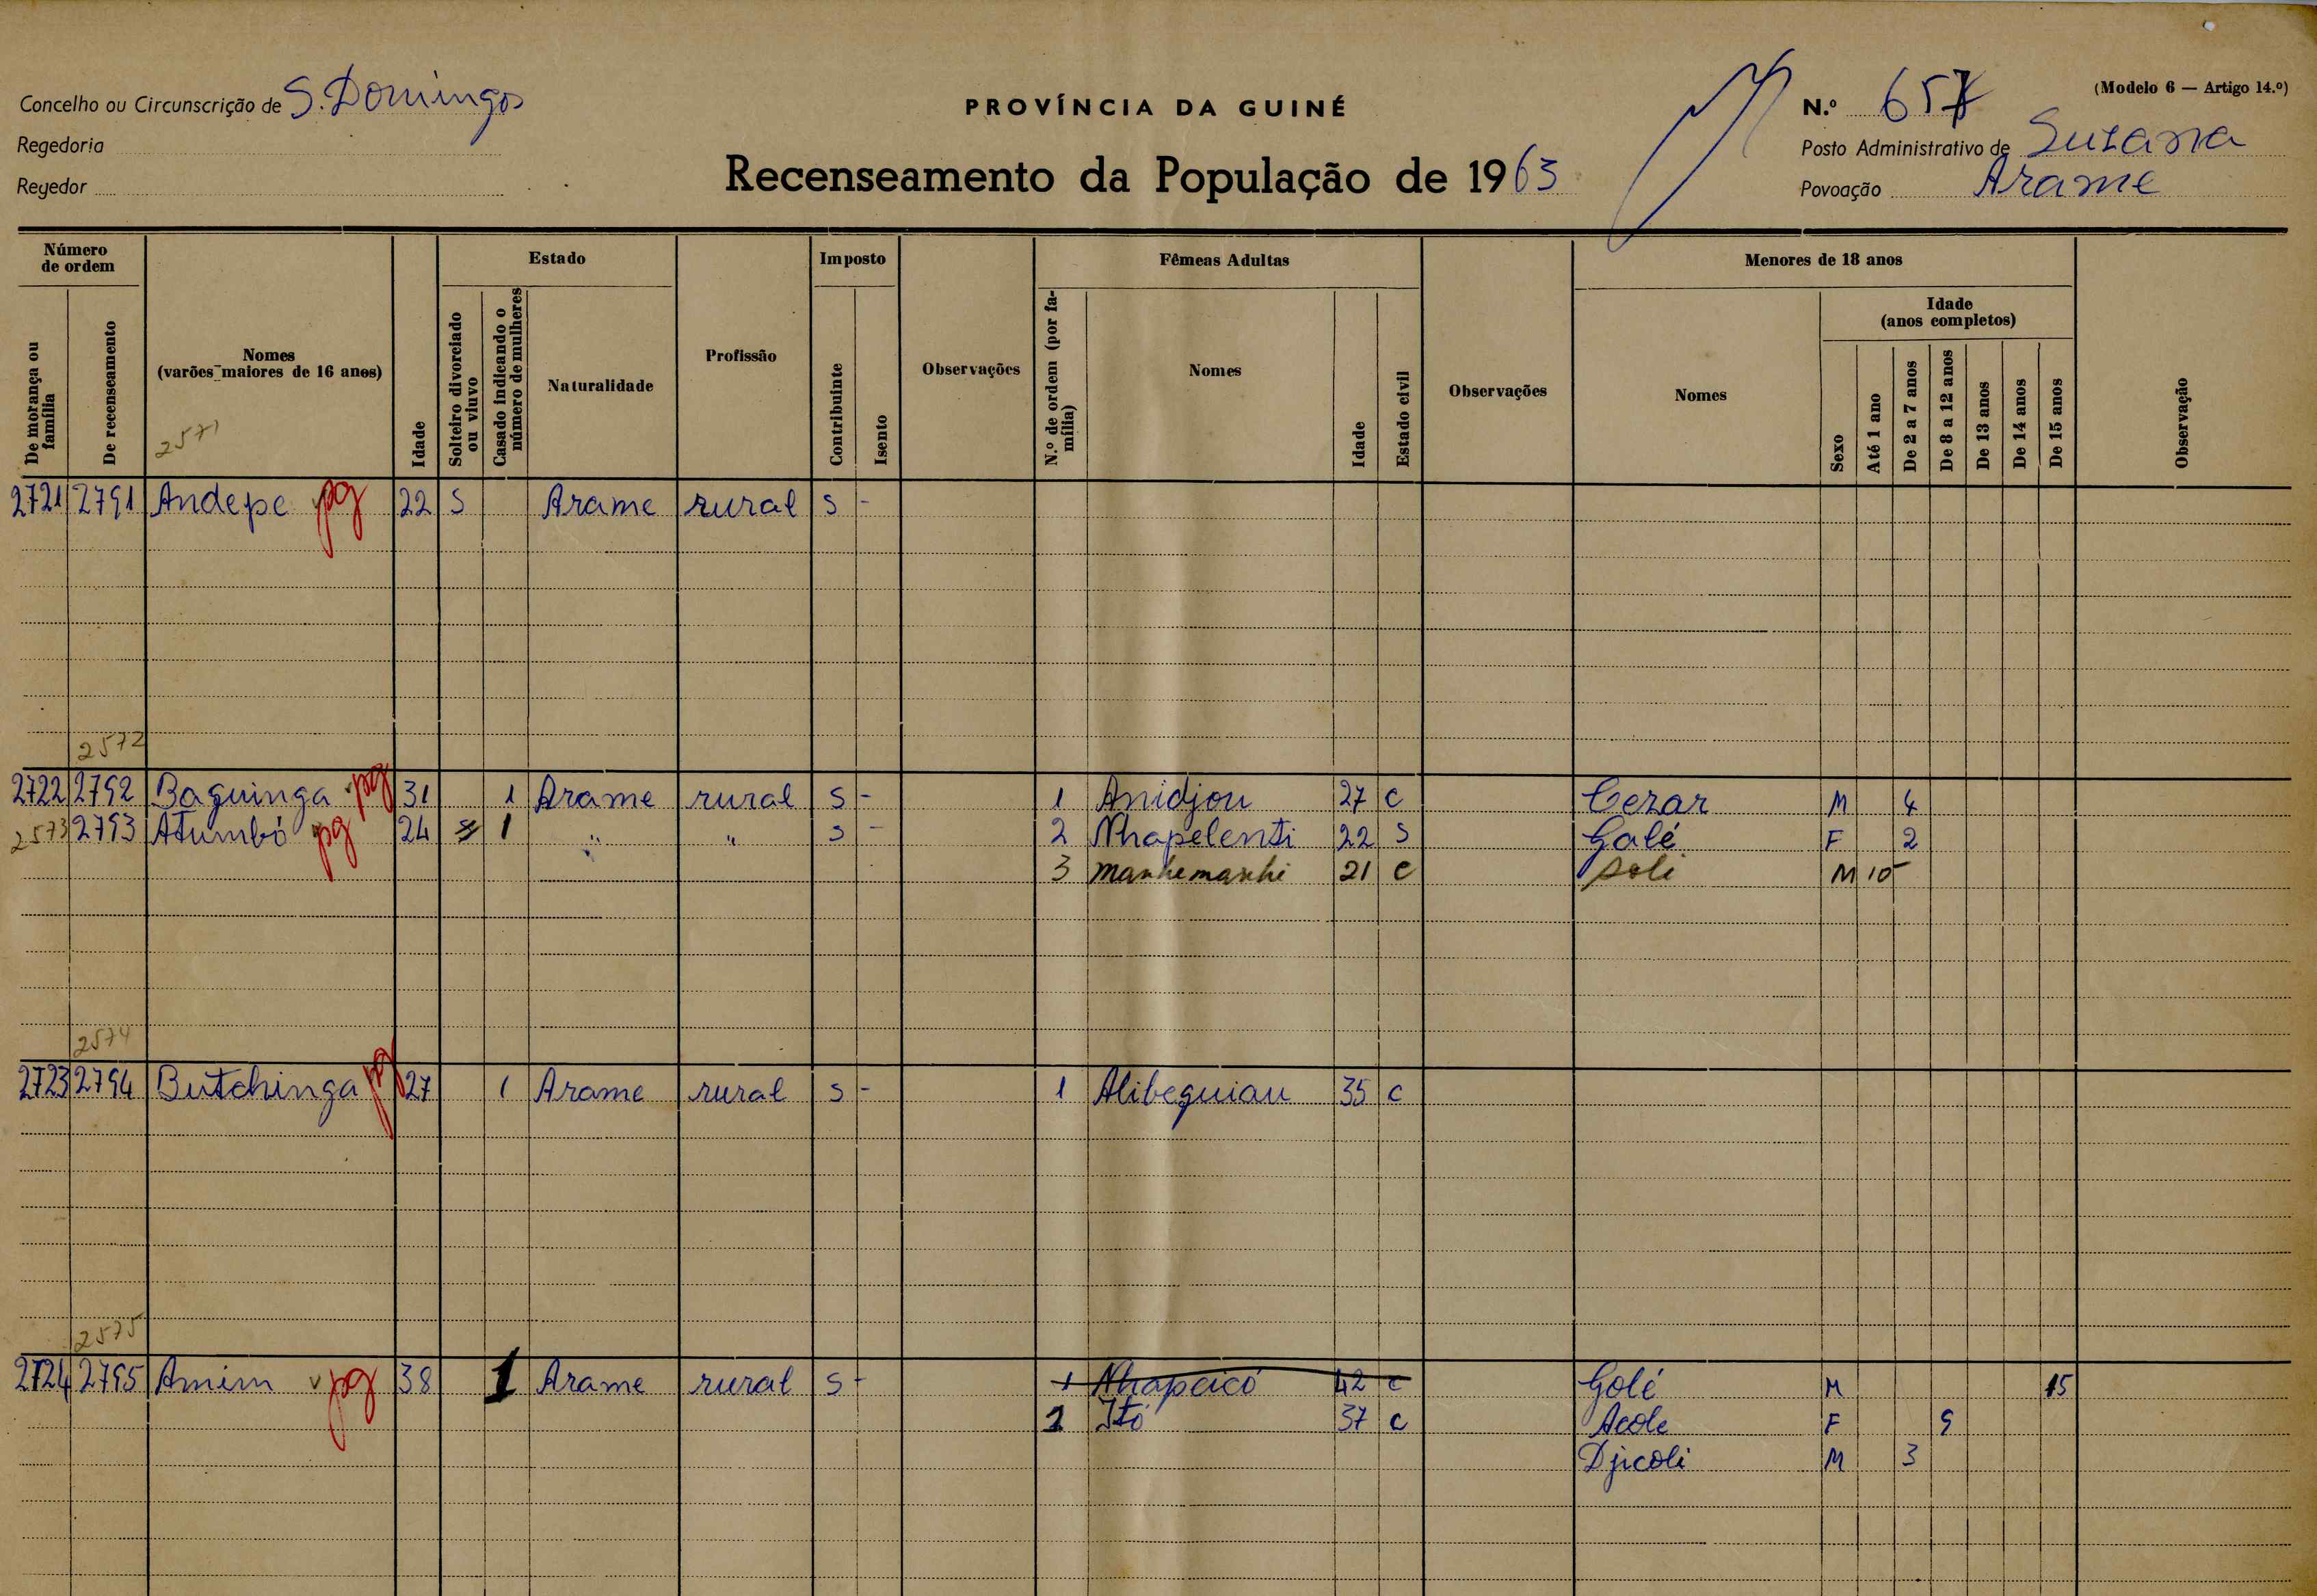 (Modelo 6 — Artigo 14.º)
Concelho ou Circunscrição de S. Domingos
PROVÍNCIA DA GUINÉ
N.º 657
Regedoria
Posto Administrativo de Suzana
Regedor
Recenseamento da População de 1963
Povoação Arame
Número de ordem
De morança ou família
De recenseamento
Nomes
(varões maiores de 16 anos)
2571
Idade
Estado
Solteiro divorciado ou viuvo
Casado indicando o número de mulheres
Naturalidade
Profissão
Imposto
Contribuinte
Isento
Observações
Fêmeas Adultas
N.º de ordem (por família)
Nomes
Idade
Estado civil
Observações
Menores de 18 anos
Nomes
Sexo
Idade
(anos completos)
Até 1 ano
De 2 a 7 anos
De 8 a 12 anos
De 13 anos
De 14 anos
De 15 anos
Observação
2721 2791 Andepe pg 22 S Arame rural S -
2572
2722 2792 Baguinga pg 31 1 Arame rural S - 1 Anidjou 27 C Cerar M 4
2573 2793 Atumbó pg 24 1 " " S - 2 Nhapelenti 22 S Galé F 2
3 manhemanhi 21 C Soli M 10
2574
2723 2794 Butchinga pg 27 1 Arame rural S - 1 Alibeguiau 35 C
2575
2724 2795 Amim pg 38 1 Arame rural S - 1 Nhapcicó 42 C Golé M 15
1 Itó 37 C Acole F 9
Djicoli M 3